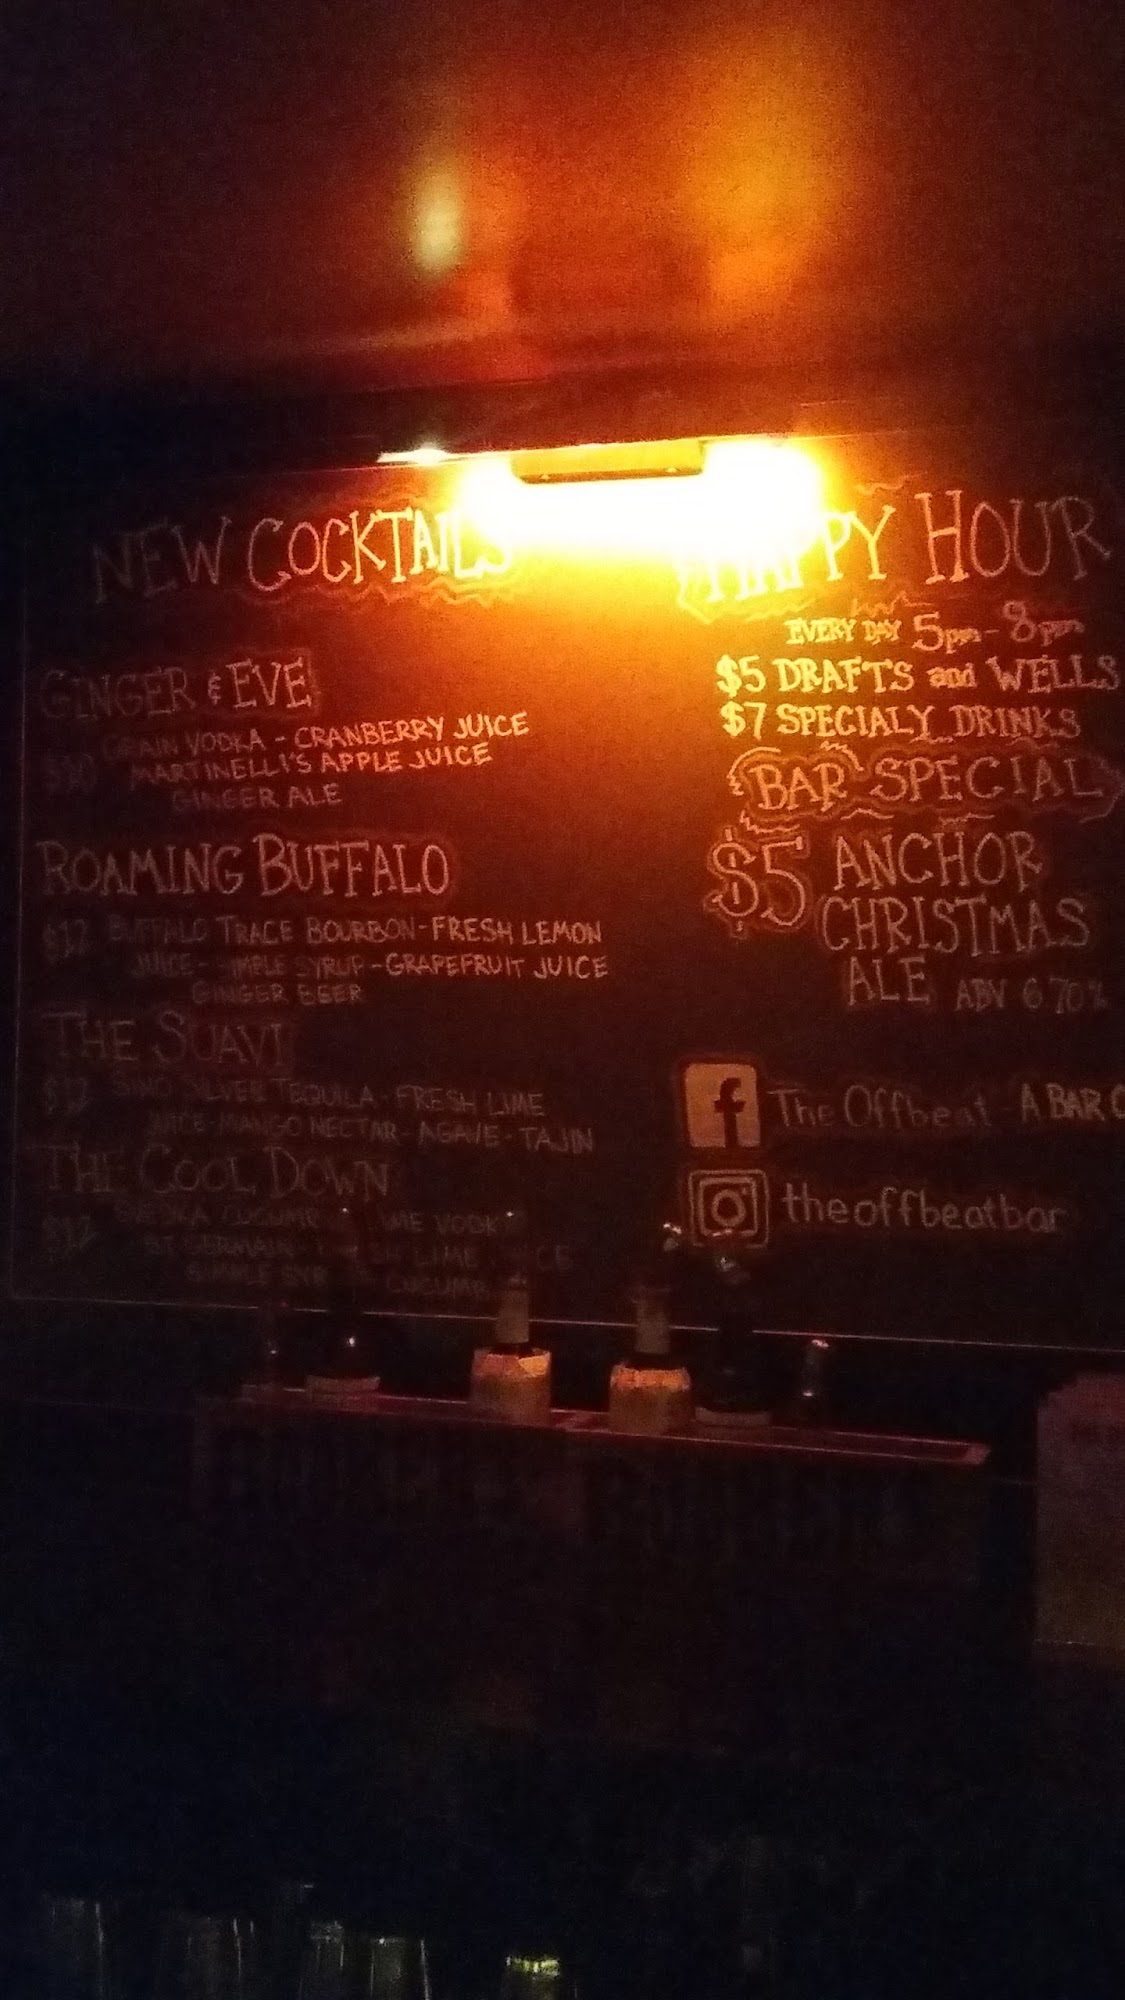 NEW COCKTAILS
GINGER & EVE
$10 GRAIN VODKA - CRANBERRY JUICE
MARTINELLI'S APPLE JUICE
GINGER ALE
ROAMING BUFFALO
$12 BUFFALO TRACE BOURBON - FRESH LEMON
JUICE - SIMPLE SYRUP - GRAPEFRUIT JUICE
GINGER BEER
THE SUAVI
$12 SILVER TEQUILA - FRESH LIME
JUICE - MANGO NECTAR - AGAVE - TAJIN
THE COOL DOWN
$12 LIME VODKA
ST GERMAIN - LIME JUICE
SIMPLE
HAPPY HOUR
EVERY DAY 5pm - 8pm
$5 DRAFTS and WELLS
$7 SPECIALY DRINKS
BAR SPECIAL
$5 ANCHOR
CHRISTMAS
ALE ABV 6 70%
f The Offbeat - A BAR
theoffbeatbar